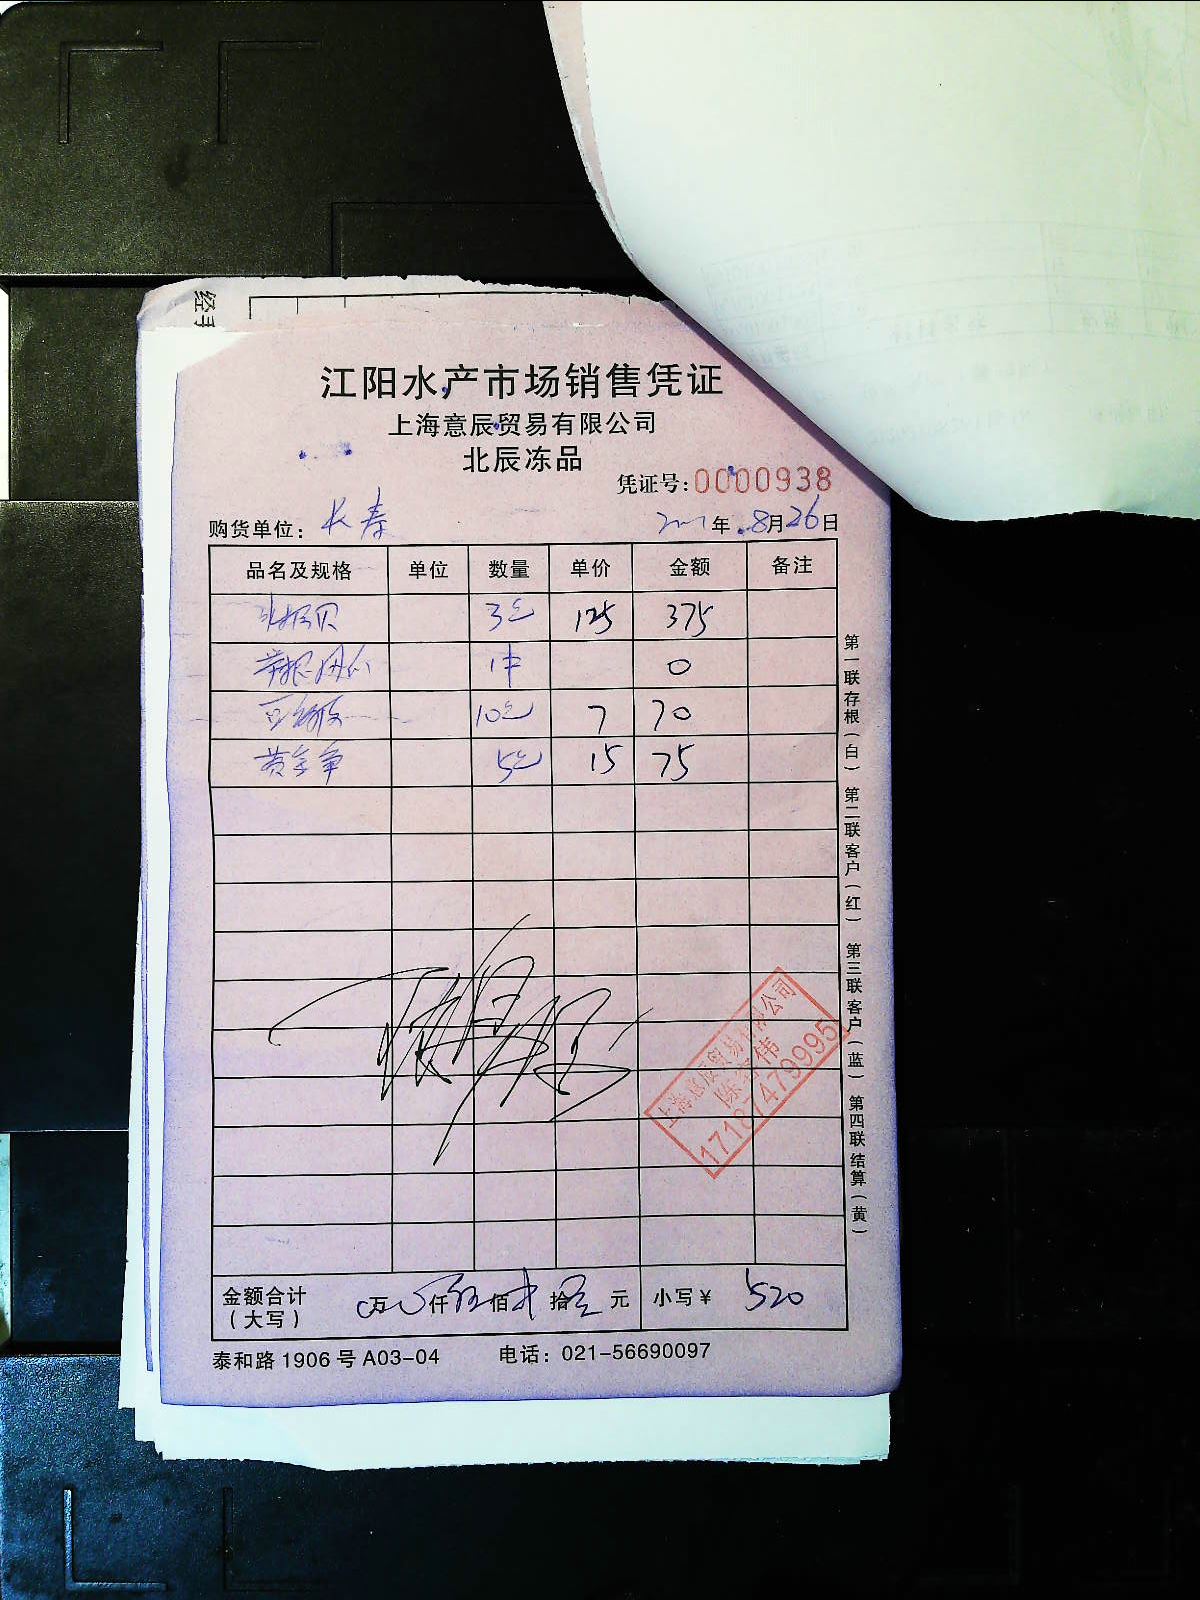 经手
江阳水产市场销售凭证
上海意辰贸易有限公司
北辰冻品
凭证号:0000938
购货单位: 长寿 年 8月26日
品名及规格 单位 数量 单价 金额 备注
3包 125 375
1件 0
10包 7 70
5包 15 75
金额合计 0万0仟伍佰贰拾 元 小写¥ 520
（大写）
泰和路 1906 号 A03-04 电话: 021-56690097
第一联存根（白） 第二联客户（红） 第三联客户（蓝） 第四联结算（黄）
上海意辰贸易有限公司
伟
17187479995